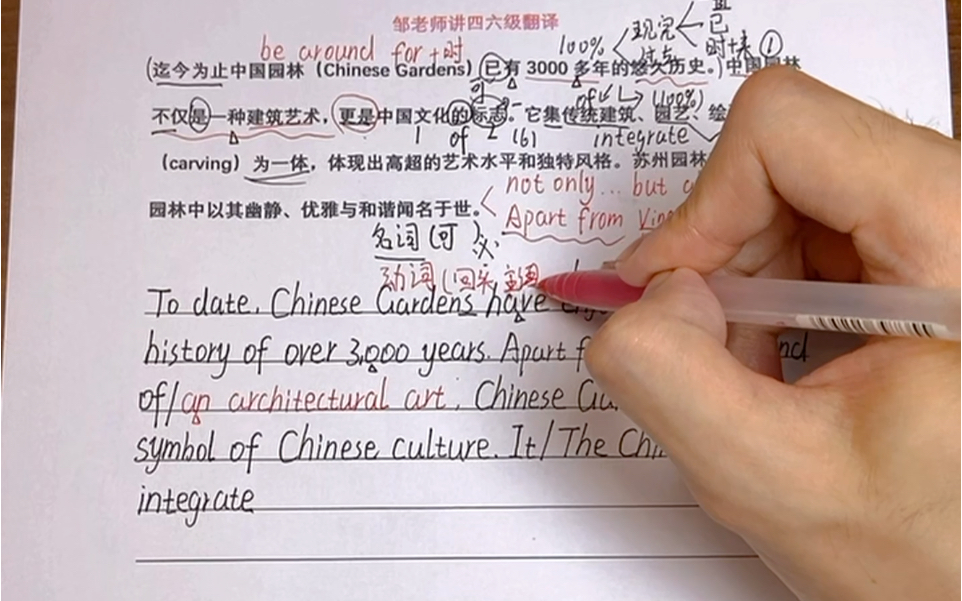 邹老师讲四六级翻译
be around for +时
100%
现完
已
时+来 ①
(迄今为止中国园林（Chinese Gardens）已有 3000 多年的悠久历史。) 中国园林
of
(100%)
不仅是一种建筑艺术，更是中国文化的标志。它集传统建筑、园艺、绘
1 of 2 (6) integrate
（carving）为一体，体现出高超的艺术水平和独特风格。苏州园林
not only... but
园林中以其幽静、优雅与和谐闻名于世。
Apart from Ving
名词(可)
动词(回头主语
To date, Chinese Gardens have
history of over 3,000 years. Apart
of/an architectural art, Chinese
symbol of Chinese culture. It/The
integrate